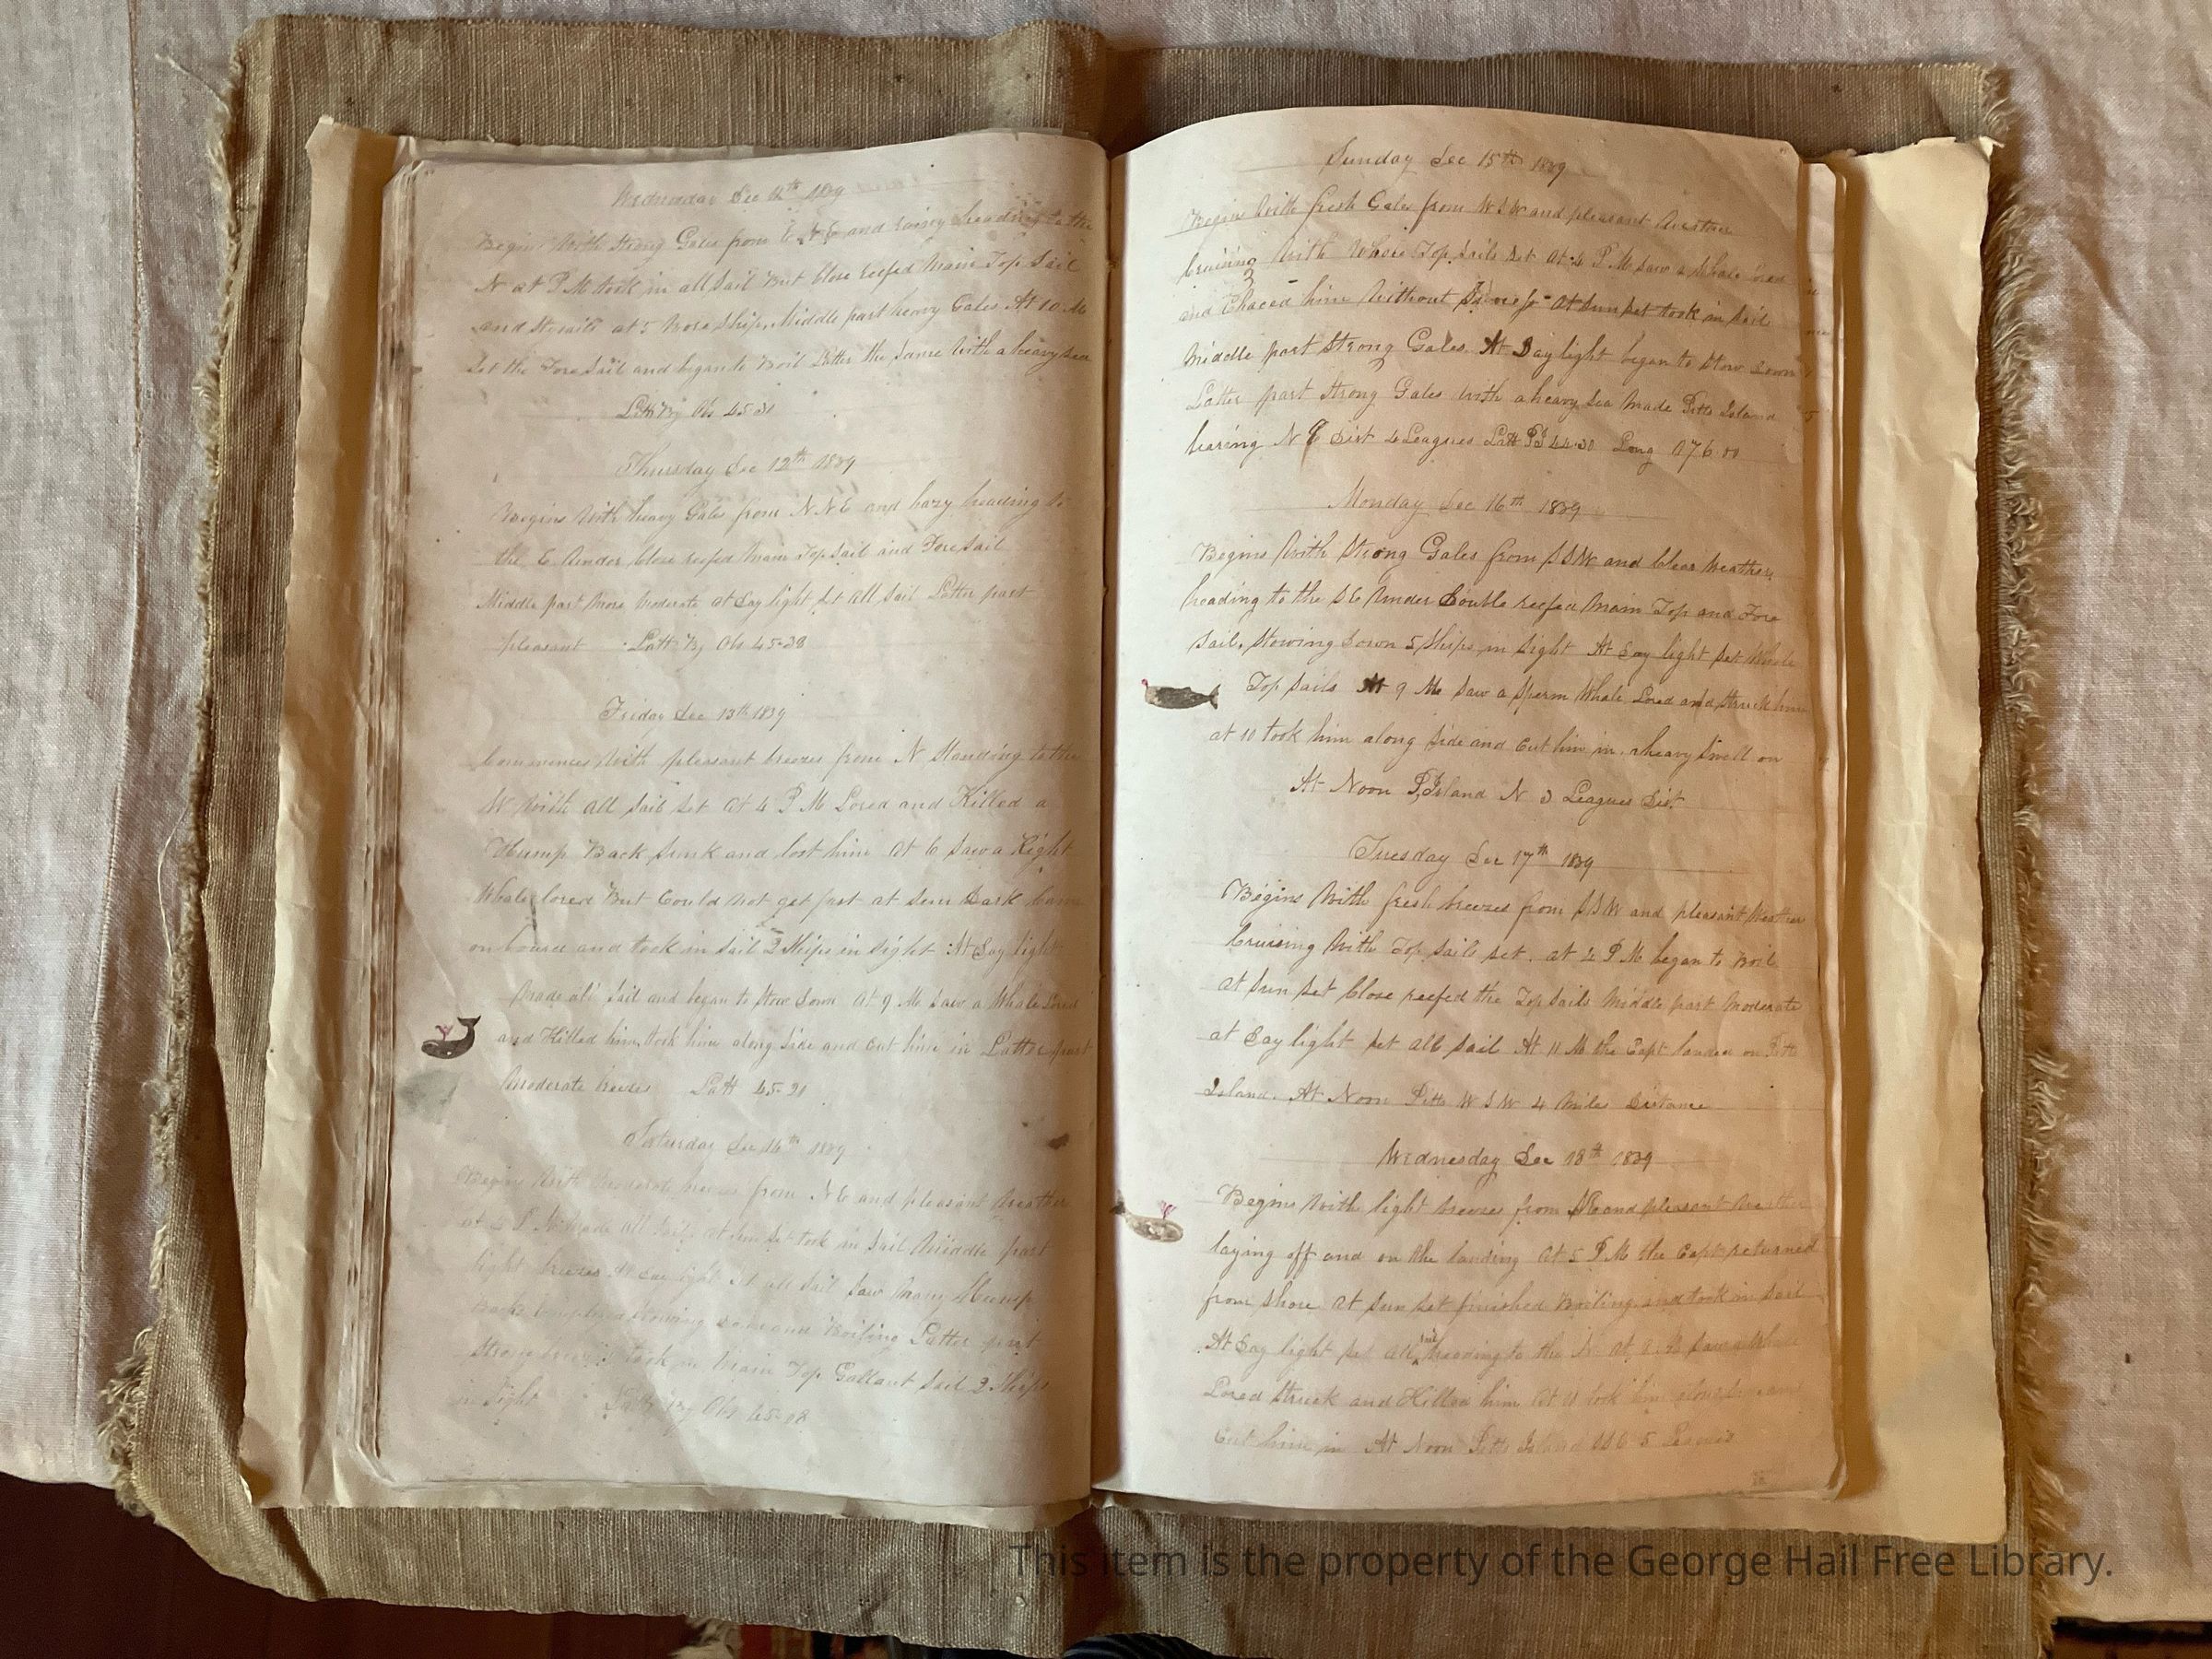 Wednesday Dec 11th 1839
Begins With Strong Gales from E N E and heading to the
N at P M took in all Sail But Close reefed Main Top Sail
and at 5 Wore Ship. Middle part heavy Gales At 10 M
Set the Fore Sail and began to Boil Latter the Same With a heavy Sea
Latt By Obs 45-31
Thursday Dec 12th 1839
Begins With heavy Gales from N N E and hazy heading to
the E Under Close reefed Main Top Sail and Fore Sail
Middle part More Moderate at Day light Set All Sail Latter part
pleasant Latt By Obs 45-28
Friday Dec 13th 1839
Commences With pleasant breezes from N Standing to the
W With all Sail Set At 4 P M Lored and Killed a
Hump Back Sunk and lost him At 6 Saw a Right
Whale lored But Could Not get fast at Dark
on and took in Sail 2 Ships in Sight At Day light
Made all Sail and began to Stow Down At 9 M Saw a Whale Lored
and Killed him, took him along Side and Cut him in Latter part
Moderate breezes Latt 45-21
Saturday Dec 14th 1839
Begins With Moderate breezes from N E and pleasant Weather
at P M Made all Sail at Sun Set took in Sail Middle part
light breezes At Day light Set all Sail Saw Many Hump
Backs Stowing Down and Boiling Latter part
Strong took in Main Top Gallant Sail 2 Ships
in Sight Latt By Obs 45-08
Sunday Dec 15th 1839
Begins With fresh Gales from W S W and pleasant Weather
Cruising With Whole Top Sails Set At 4 P M Saw a Whale
and Chaced him Without Sucness At Sun Set took in Sail
Middle part Strong Gales At Day light began to Stow Down
Latter part Strong Gales With a heavy Sea Made Pitts Island
bearing N E Dist 4 Leagues Latt 44-30 Long 176 00
Monday Dec 16th 1839
Begins With Strong Gales from S S W and Clear Weather
heading to the S E Under Double reefed Main Top and Fore
Sail. Stowing Down 5 Ships in Sight At Day light Set Whole
Top Sails At 9 M Saw a Sperm Whale Lored and Struck him
at 10 took him along Side and Cut him in. a heavy Swell on
At Noon P Island N 3 Leagues Dist
Tuesday Dec 17th 1839
Begins With fresh breezes from S S W and pleasant Weather
Cruising With Top Sails set. at 4 P M began to Boil
At Sun Set Close reefed the Top Sails Middle part Moderate
at Day light Set All Sail At 11 M the Capt landed on Pitts
Island. At Noon Pitts W S W 4 Miles Distance
Wednesday Dec 18th 1839
Begins With light breezes from S E and pleasant Weather
laying off and on the landing At 5 P M the Capt returned
from Shore At Sun Set finished Boiling and took in Sail
At Day light Set All Sail heading to the N At M Saw a Whale
Lored Struck and Killed him At 11 took him along Side and
Cut him in At Noon Pitts Island 5 Leagues
This item is the property of the George Hail Free Library.